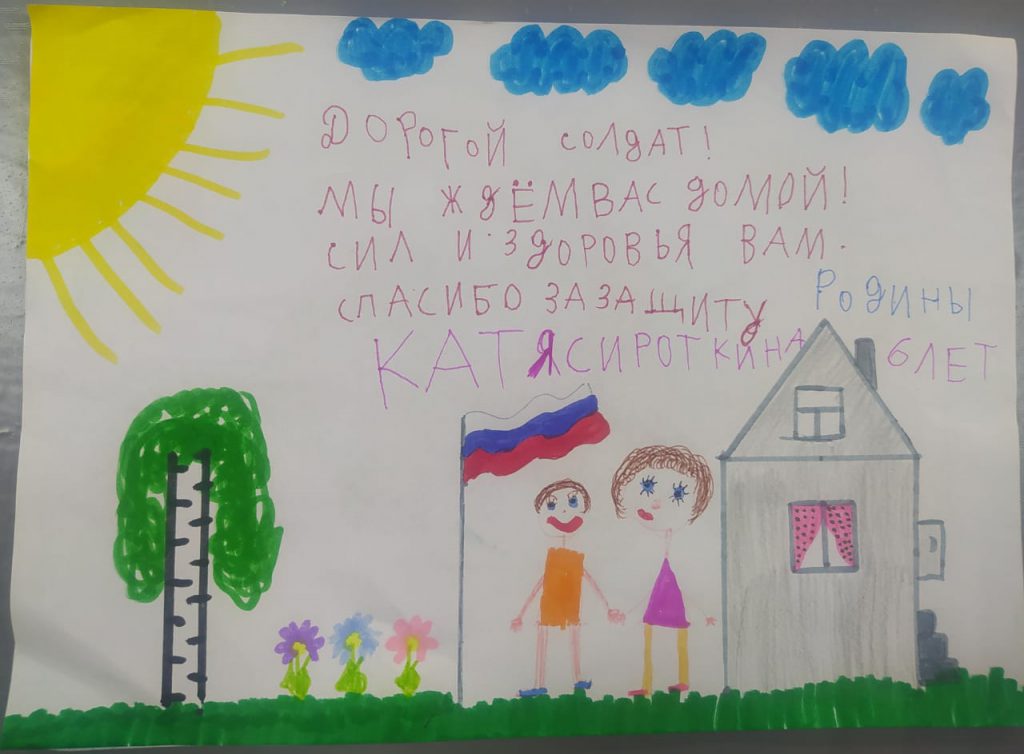 ДОРОГОЙ СОЛДАТ!
МЫ ЖДЁМ ВАС ДОМОЙ!
СИЛ И ЗДОРОВЬЯ ВАМ.
СПАСИБО ЗА ЗАЩИТУ РОДИНЫ
КАТЯ СИРОТКИНА 6 ЛЕТ